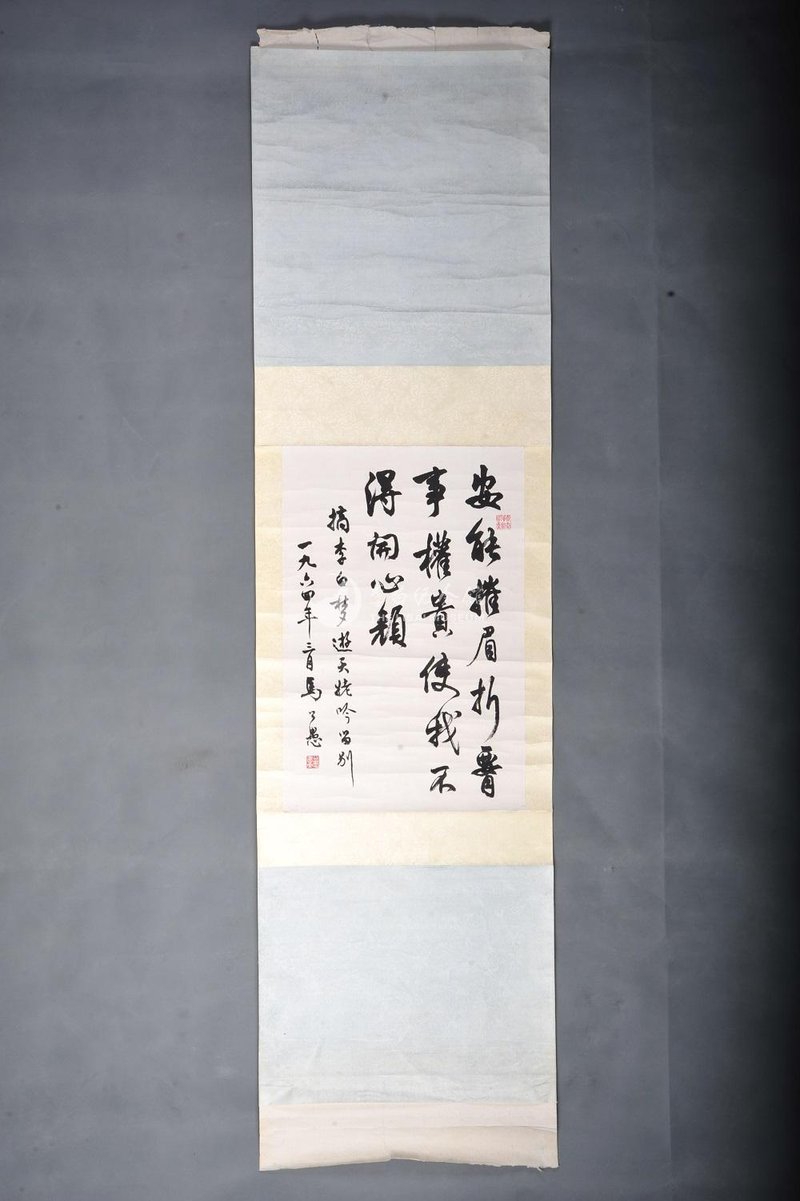 安能摧眉折腰
事權貴使我不
得開心顏
摘李白夢遊天姥吟留别
一九六四年三月馬公愚